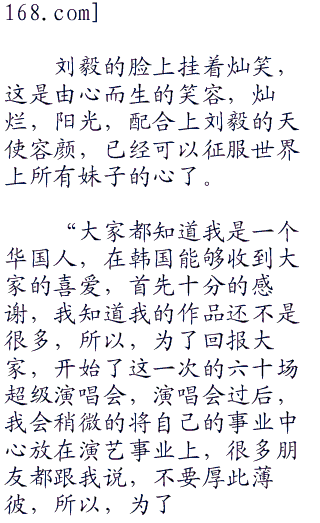 168.com]
刘毅的脸上挂着灿笑，
这是由心而生的笑容，灿
烂，阳光，配合上刘毅的天
使容颜，已经可以征服世界
上所有妹子的心了。
“大家都知道我是一个
华国人，在韩国能够收到大
家的喜爱，首先十分的感
谢，我知道我的作品还不是
很多，所以，为了回报大
家，开始了这一次的六十场
超级演唱会，演唱会过后，
我会稍微的将自己的事业中
心放在演艺事业上，很多朋
友都跟我说，不要厚此薄
彼，所以，为了